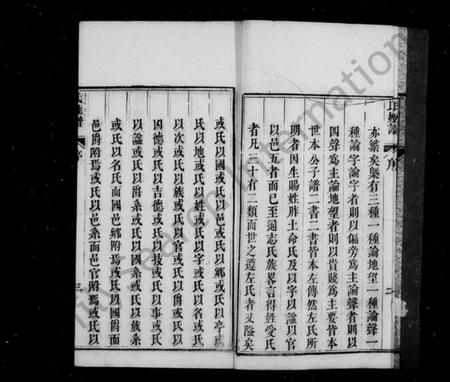 亦紊矣槩有三種一種論地望一種論聲一
種論字論字者則以偏旁為主論聲者則以
四聲為主論地望者則以貴賤為主要皆本
世本公子譜二書二書皆本左傳然左氏所
明者因生賜姓胙土命氏及以字以諡以官
以邑五者而已至通志氏族畧言得姓受氏
者凡三十有二類而世之遵左氏者又隘矣
氏族譜
序
二
或氏以國或氏以邑或氏以鄉或氏以亭或
氏以地或氏以姓或氏以字或氏以名或氏
以次或氏以族或氏以官或氏以爵或氏以
因德或氏以吉德或氏以技或氏以事或氏
以諡或氏以爵系或氏以國系或氏以族系
或氏以名氏而國邑鄉附焉或氏以國爵而
邑爵附焉或氏以邑系而邑官附焉或氏以
氏族譜
序
三